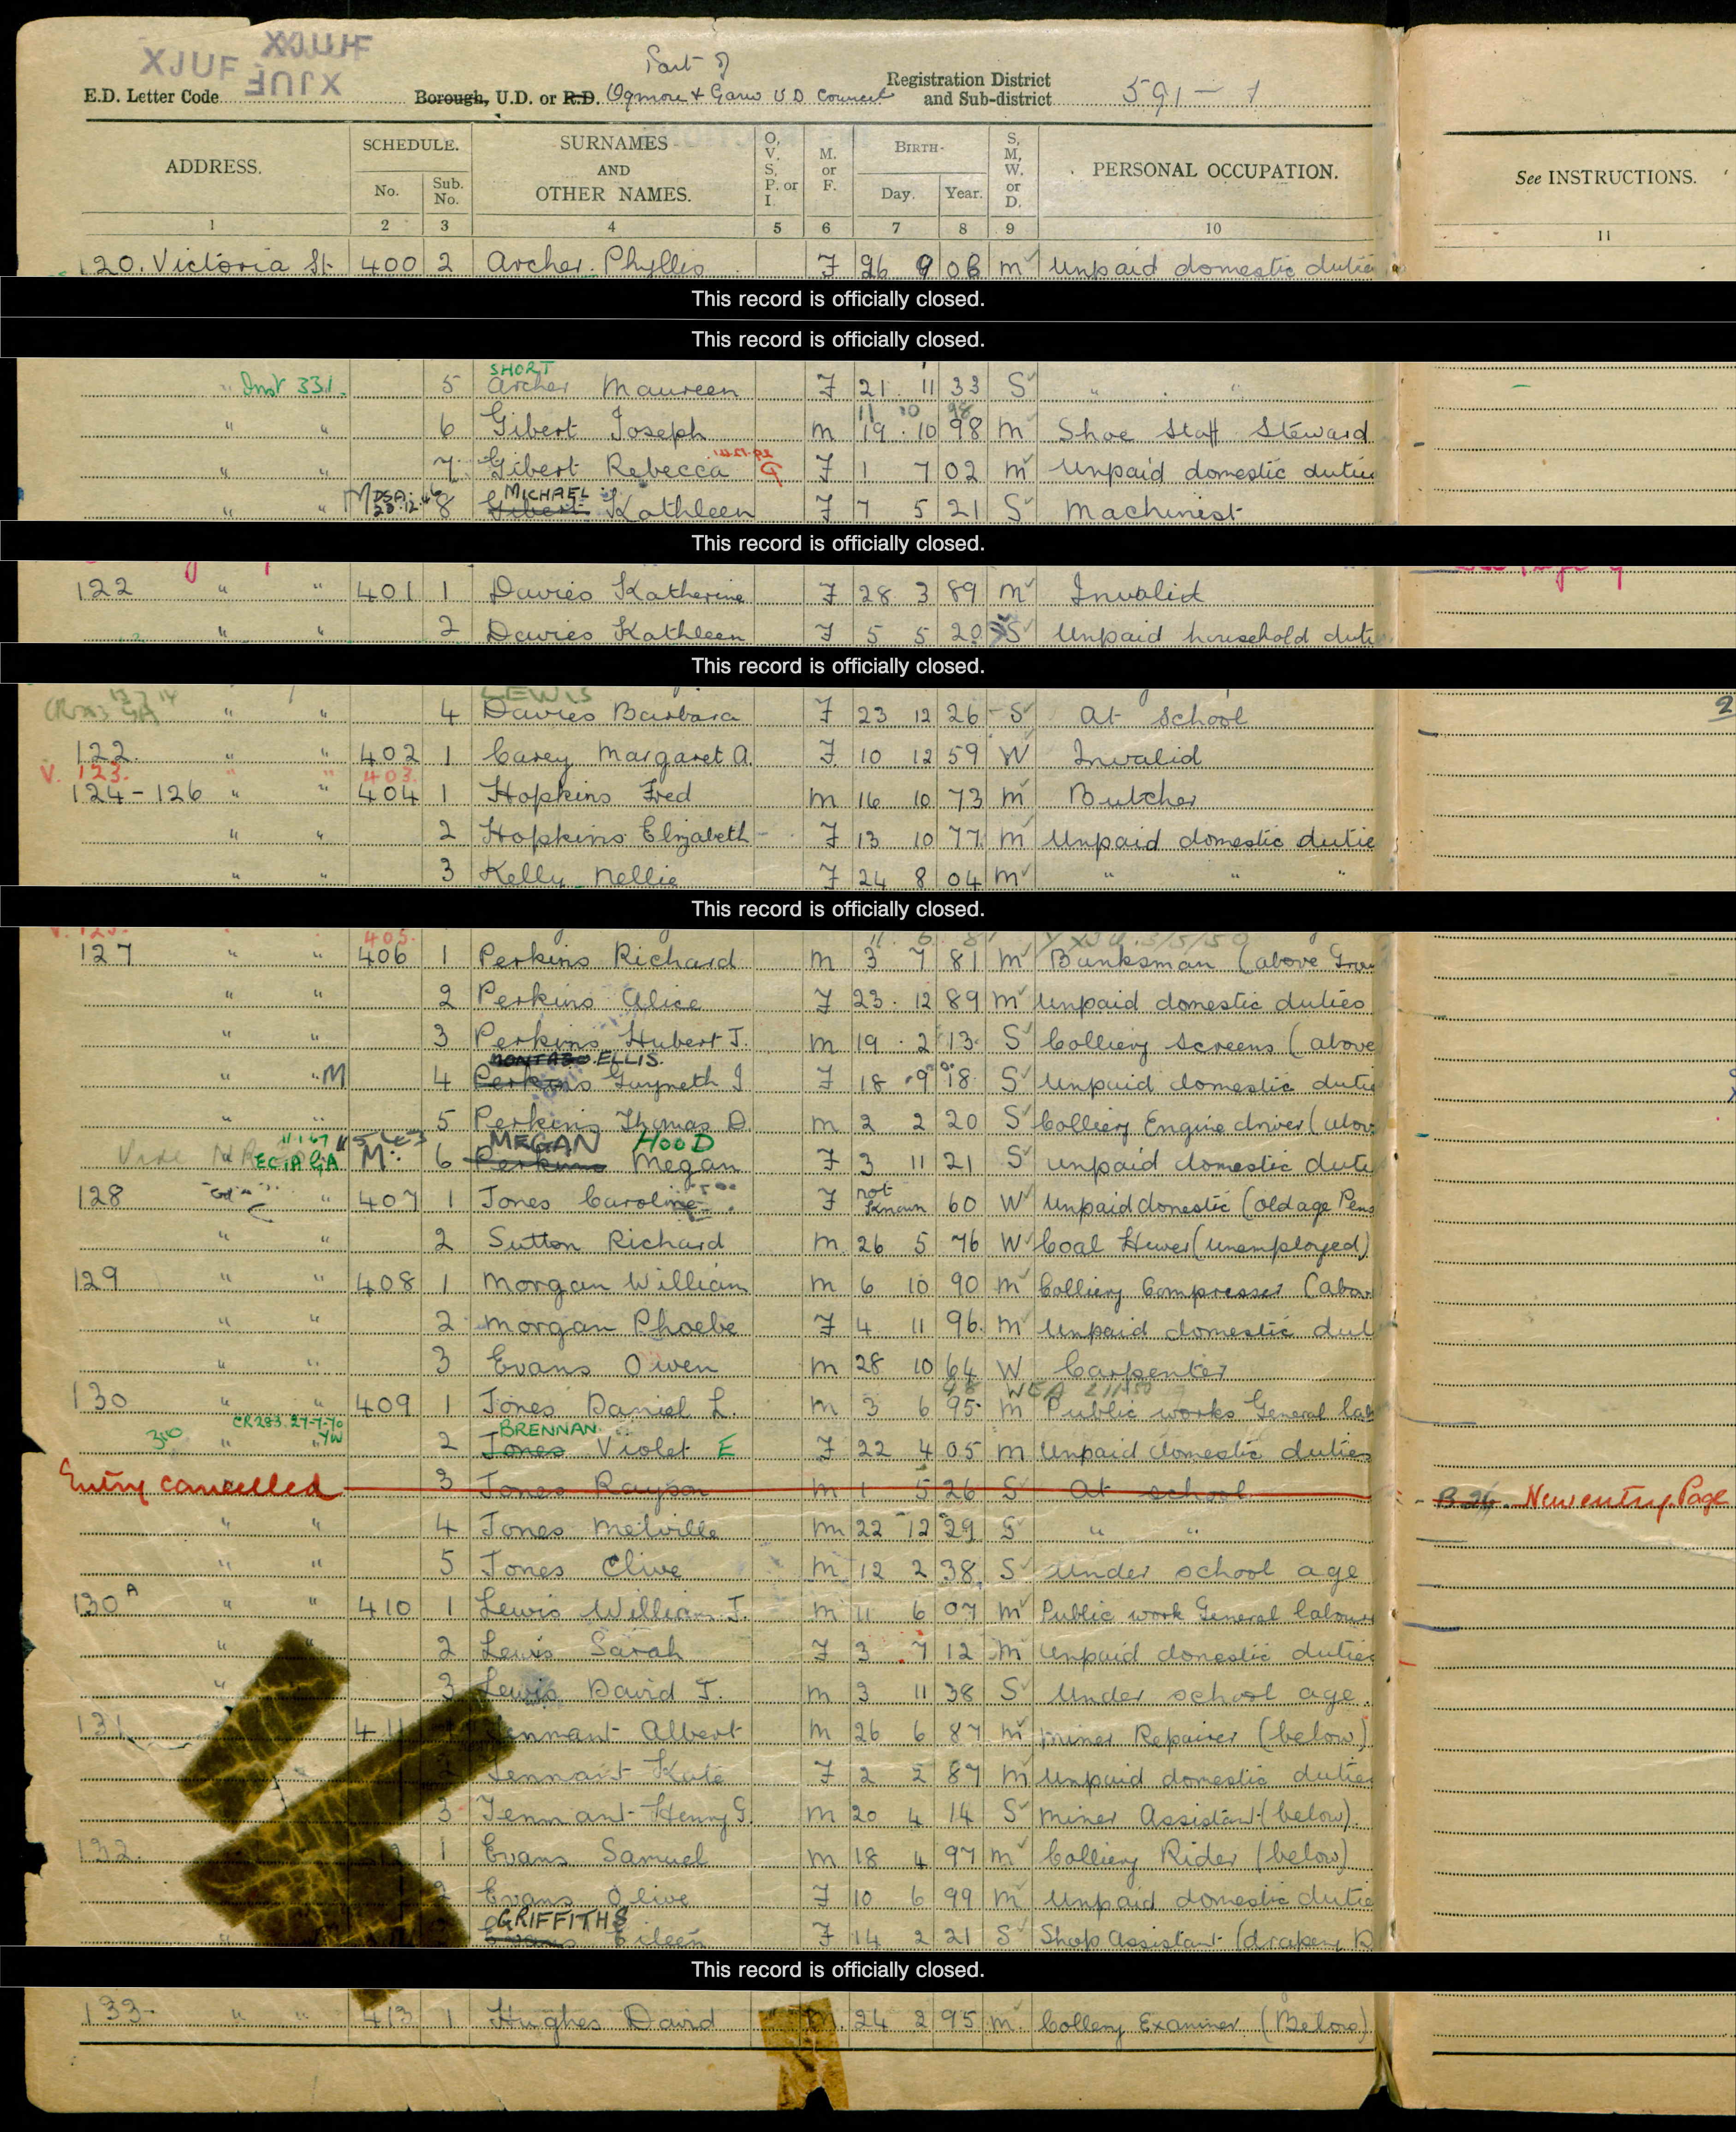 XJUF XXJUF
XJUF
Part of
E.D. Letter Code Borough, U.D. or R.D. Ogmore & Garw U D Council Registration District and Sub-district 591 - 1
ADDRESS. SCHEDULE. No. Sub. No. SURNAMES AND OTHER NAMES. O, V. S, P. or I. M. or F. BIRTH- Day. Year. S, M, W. or D. PERSONAL OCCUPATION. See INSTRUCTIONS.
1 2 3 4 5 6 7 8 9 10 11
120. Victoria St 400 2 Archer Phyllis F 26 9 08 m Unpaid domestic duties
This record is officially closed.
This record is officially closed.
SHORT
" Inst 331. 5 Archer Maureen F 21 11 33 S " "
11 10 98
" " 6 Gibert Joseph m 19 10 98 m Shoe Staff Steward
" " 7 Gibert Rebecca F 1 7 02 m Unpaid domestic dutie
MICHAEL
" " M 8 Gibert Kathleen F 7 5 21 S Machinist
This record is officially closed.
122 " " 401 1 Davies Katherine F 28 3 89 m Invalid
" " 2 Davies Kathleen F 5 5 20 S Unpaid household duti
This record is officially closed.
LEWIS
" " 4 Davies Barbara F 23 12 26 S At school
122 " " 402 1 Carey Margaret A. F 10 12 59 W Invalid
V. 123. " " 403.
124-126 " " 404 1 Hopkins Fred m 16 10 73 m Butcher
" " 2 Hopkins Elizabeth F 13 10 77 m Unpaid domestic dutie
" " 3 Kelly Nellie F 24 8 04 m " " "
This record is officially closed.
405.
127 " " 406 1 Perkins Richard m 3 7 81 m Banksman (above Grou
" " 2 Perkins Alice F 23 12 89 m Unpaid domestic duties
" " 3 Perkins Hubert J. m 19 2 13 S Colliery Screens (above
ELLIS.
" " M 4 Perkins Gwyneth J F 18 9 18 S Unpaid domestic dutie
" " 5 Perkins Thomas D m 2 2 20 S Colliery Engine driver (abov
MEGAN HOOD
M. 6 Perkins Megan F 3 11 21 S unpaid domestic dute
128 " 407 1 Jones Caroline F not known 60 W Unpaid domestic (old age Pens
" " 2 Sutton Richard m 26 5 76 W Coal Hewer (unemployed)
129 " " 408 1 Morgan William m 6 10 90 m Colliery Compressor (abov
" " 2 Morgan Phoebe F 4 11 96 m Unpaid domestic dut
" " 3 Evans Owen m 28 10 64 W Carpenter
130 " " 409 1 Jones Daniel L. m 3 6 95 m Public works General lab
CR 283 27-7-70 YW
BRENNAN
" " 2 Jones Violet E F 22 4 05 m Unpaid domestic duties
Entry cancelled 3 Jones Rayson m 1 5 26 S At school New entry. Page
" " 4 Jones Melville m 22 12 29 S " "
" " 5 Jones Clive m 12 2 38 S Under school age
130A " " 410 1 Lewis William J. m 11 6 07 m Public work General labour
" " 2 Lewis Sarah F 3 7 12 m Unpaid domestic duties
" 3 Lewis David J. m 3 11 38 S Under school age.
131 Tennant Albert m 26 6 87 m Miner Repairer (below)
Tennant Kate F 2 2 87 m Unpaid domestic duties
3 Tennant Henry G. m 20 4 14 S Miner Assistant (below)
132. 1 Evans Samuel m 18 4 97 m Colliery Rider (below)
2 Evans Olive F 10 6 99 m Unpaid domestic dutie
GRIFFITHS
Evans Eileen F 14 2 21 S Shop Assistant (drapery
This record is officially closed.
133 " " 413 1 Hughes David m. 24 2 95 m. Colliery Examiner (Below)